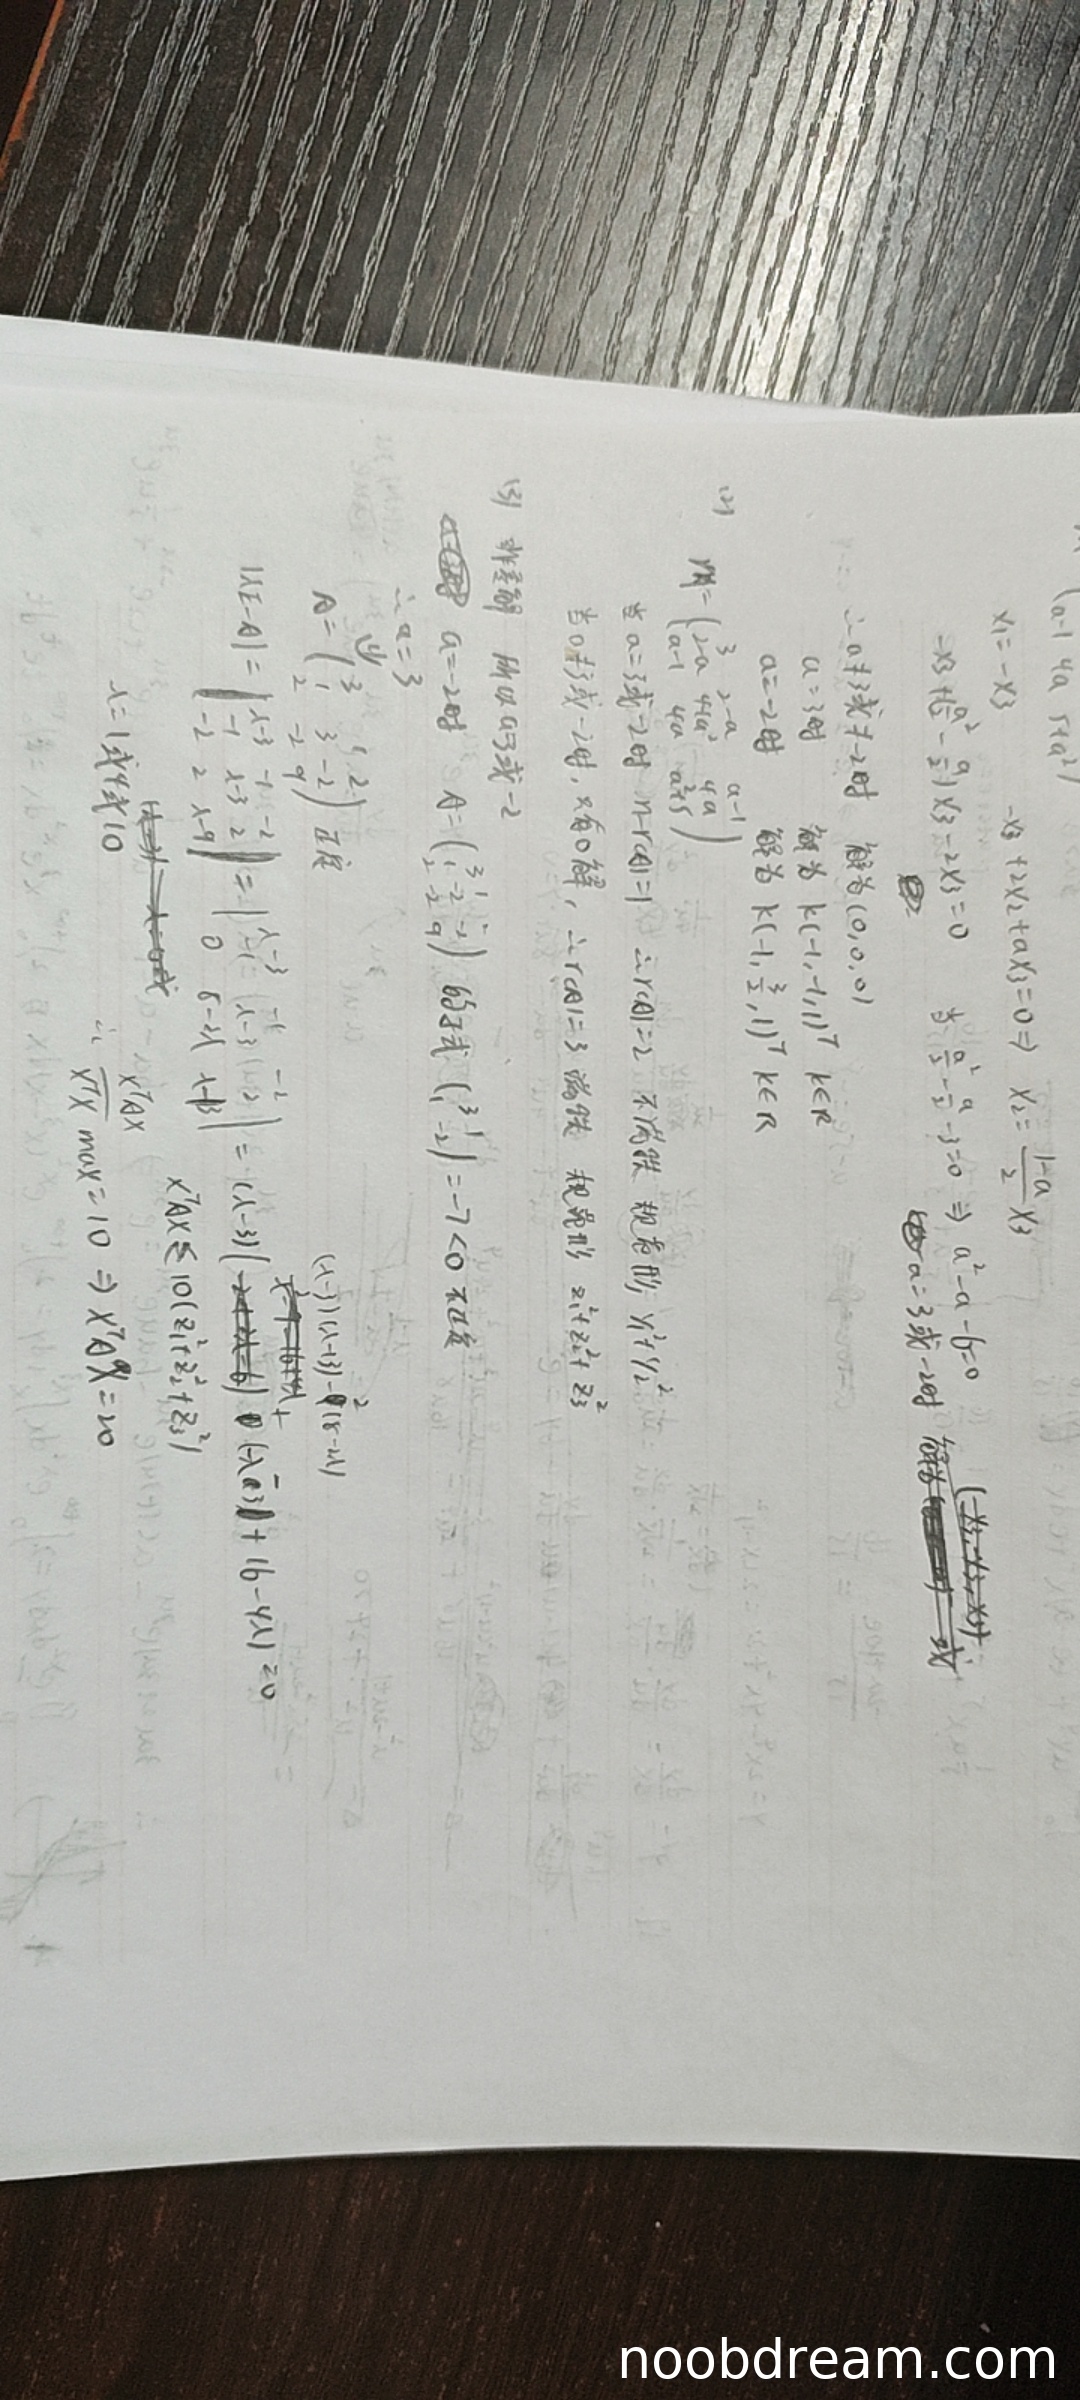 (a-1 4a 5+a²)
x₁=-x₃ -x₃+2x₂+ax₃=0⇒ x₂=\frac{1-a}{2}x₃
-x₃+(\frac{a²}{2}-\frac{a}{2})x₃-2x₃=0 当\frac{a²}{2}-\frac{a}{2}-3=0 ⇒ a²-a-6=0
a=3或-2时
∴a≠3或≠-2时 解为(0,0,0)
a=3时 解为 k(-1,-1,1)ᵀ k∈R
a=-2时 解为 k(-1,\frac{3}{2},1)ᵀ k∈R
(2) =(3 2-a a-1
2-a 4+a² 4a
a-1 4a a²+5)
当a=3或-2时 n-r(A)=1 ∴r(A)=2 不满秩 规范形 y₁²+y₂²
当a≠3或-2时, 只有0解, ∴r(A)=3 满秩 规范形 z₁²+z₂²+z₃²
(3) 非零解 所以a=3或-2
a=-2时 A=(3 1 2
1 -2 -2
2 -2 9) 的子式 (3 1
1 -2)=-7<0 不正定
∴a=3
⇓
A=(3 1 2
1 3 -2
2 -2 9) 正定
(λ-3)(λ-13)-2(8-2λ)
|λE-A|=|λ-3 -1 -2
-1 λ-3 2
-2 2 λ-9|=|λ-3 -1 -2
-1 λ-3 2
0 8-2λ λ-13|=(λ-3)( +16-4λ)=0
xᵀAx≤10(z₁²+z₂²+z₃²)
λ=1或4或10
∴ \frac{xᵀAx}{xᵀx} max=10 ⇒ xᵀAx=20
noobdream.com